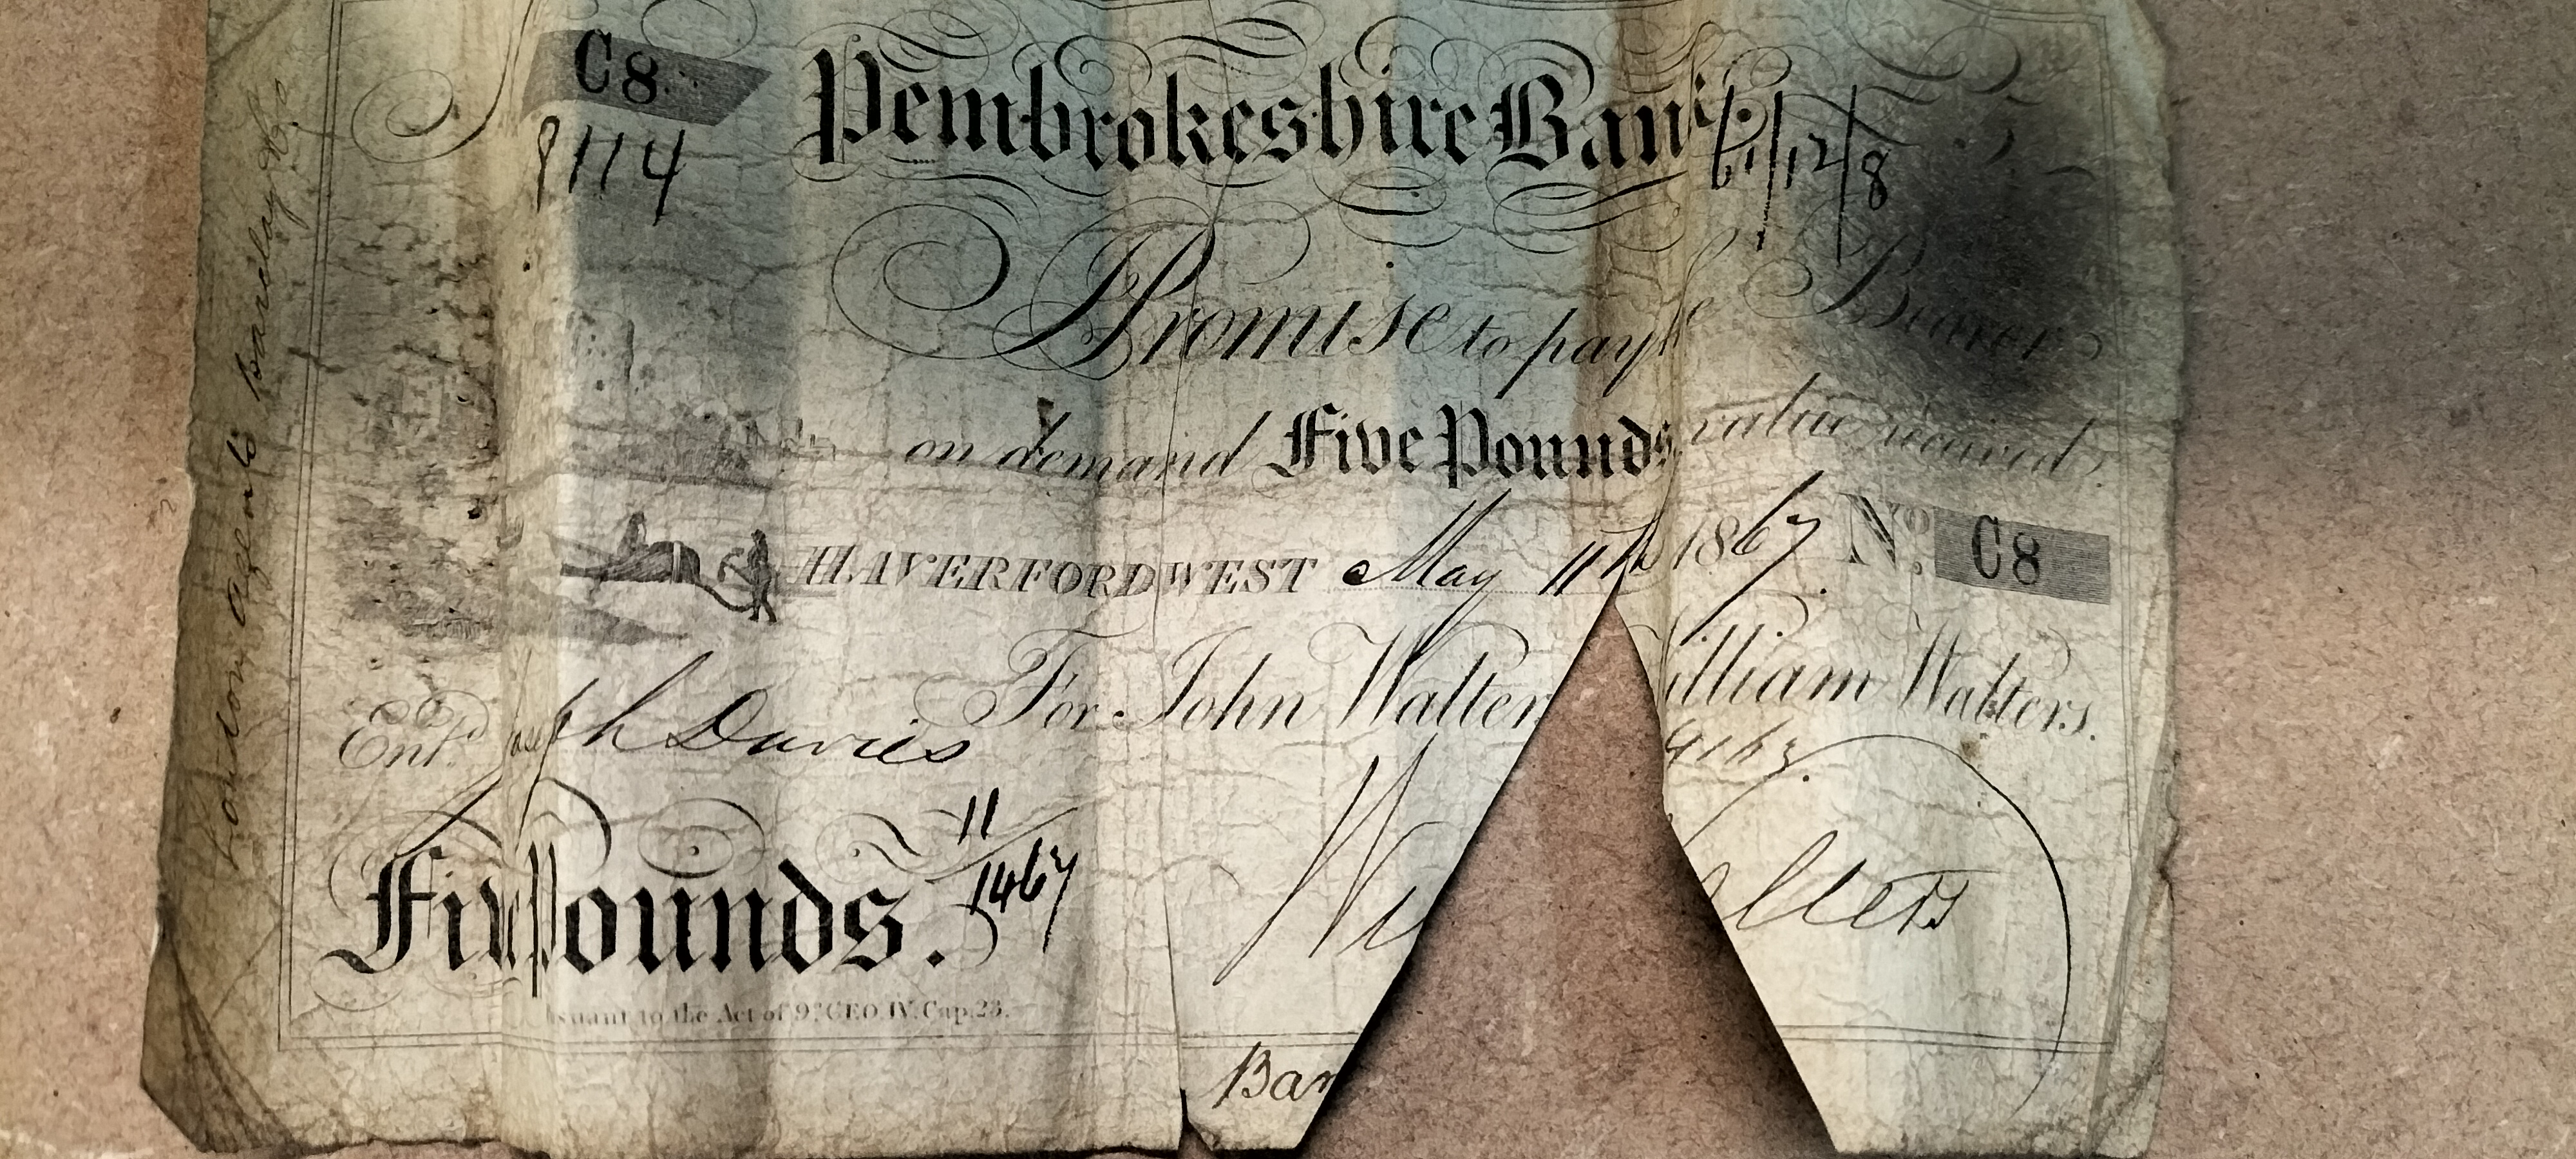 C8
Pembrokeshire Bank.
9114
61/12/8
Promise to pay Bearer
on demand Five Pounds value received.
HAVERFORDWEST May 11th 1867 No. C8
For John Walter illiam Walters.
Entd Joseph Davies
11
1467
Five Pounds.
Wi alters
suant to the Act of 9.th GEO. IV. Cap. 23.
Ban
London agents barclay & Co